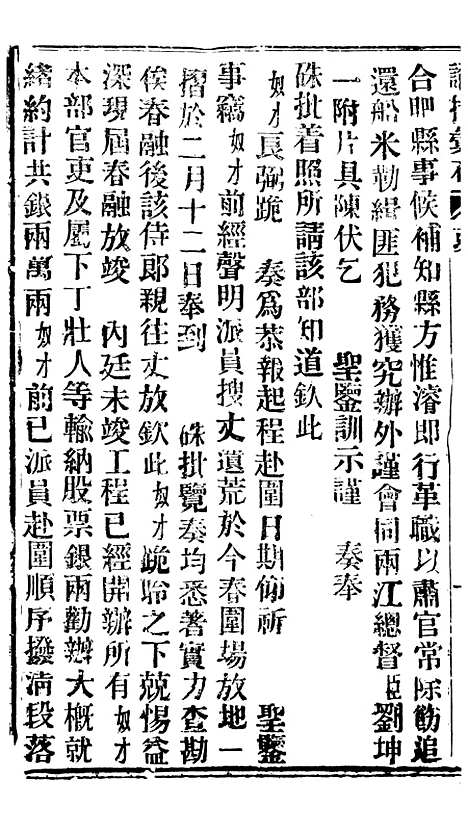 合肥縣事候補知縣方惟濬卽行革職以肅官常除飭追
還船米勒緝匪犯務獲究辦外謹會同兩江總督臣劉坤
一附片具陳伏乞 聖鑒訓示謹 奏奉
硃批着照所請該部知道欽此
奴才良弼跪 奏爲恭報起程赴圍日期仰祈 聖鑒
事竊奴才前經聲明派員搜丈遺荒於今春圍場放地一
摺於二月十二日奉到 硃批覽奏均悉著實力查勘
俟春融後該侍郎親往丈放欽此奴才跪聆之下兢惕益
深現屆春融放竣 內廷未竣工程已經開辦所有奴才
本部官吏及屬下丁壯人等輸納股票銀兩勸辦大概就
緒約計共銀兩萬兩奴才前已派員赴圍順序撥淸段落